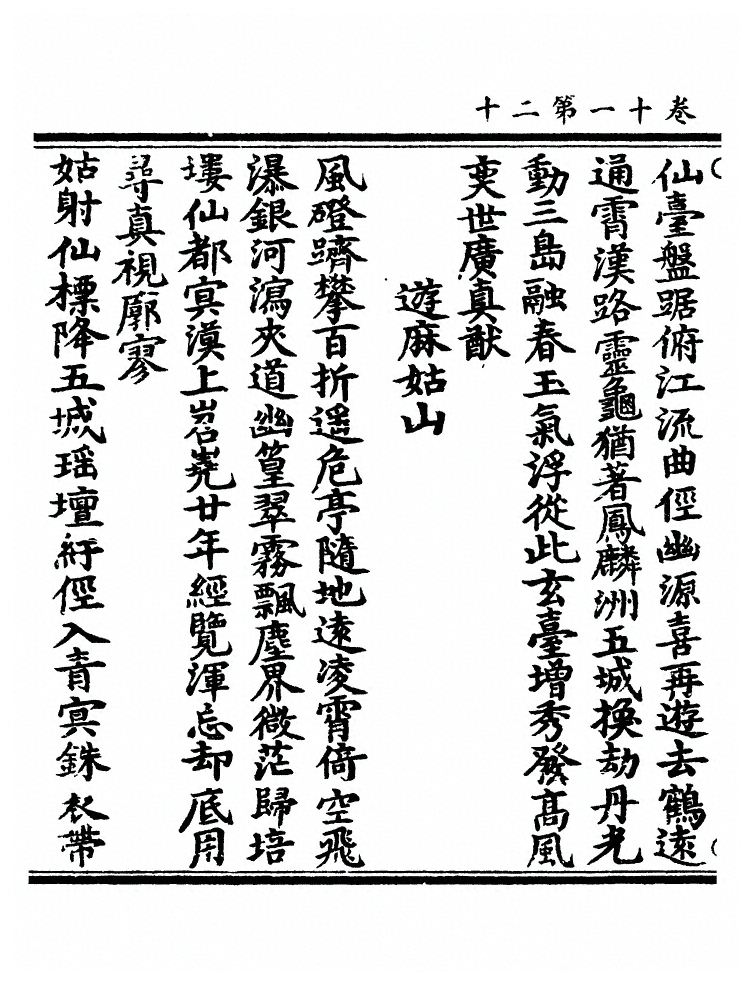 卷十一第二十
仙臺盤踞俯江流曲徑幽源喜再遊去鶴遠
通霄漢路靈龜猶著鳳麟洲五城換劫丹光
動三島融春玉氣浮從此玄臺增秀發高風
奕世廣真猷
遊麻姑山
風磴躋攀百折遥危亭隨地遠凌霄倚空飛
瀑銀河瀉夾道幽篁翠霧飄塵界微茫歸培
塿仙都㝠漠上岧嶤廿年經覽渾忘却底用
尋真視廓寥
姑射仙標降五城瑶壇紆徑入青㝠銖衣帶